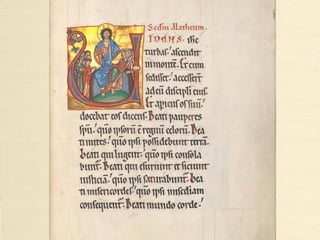 Scdm Matheum.
IDENS. ihc
turbas. ascendit
in monte. Et cum
sedisset. accesserт
ad eu discipli eius.
Et aperiens os suu.
docebat eos dicens. Beati pauperes
spu. quo ipsoru e regnu celoru. Bea
ti mites. quo ipsi possidebunt terra.
Beati qui lugent. quo ipsi consola
bunt. Beati qui esuriunt et sitiunt
iusticia. quo ipsi saturabunt. Bea
ti misericordes. quo ipsi misediam
consequent. Beati mundo corde.